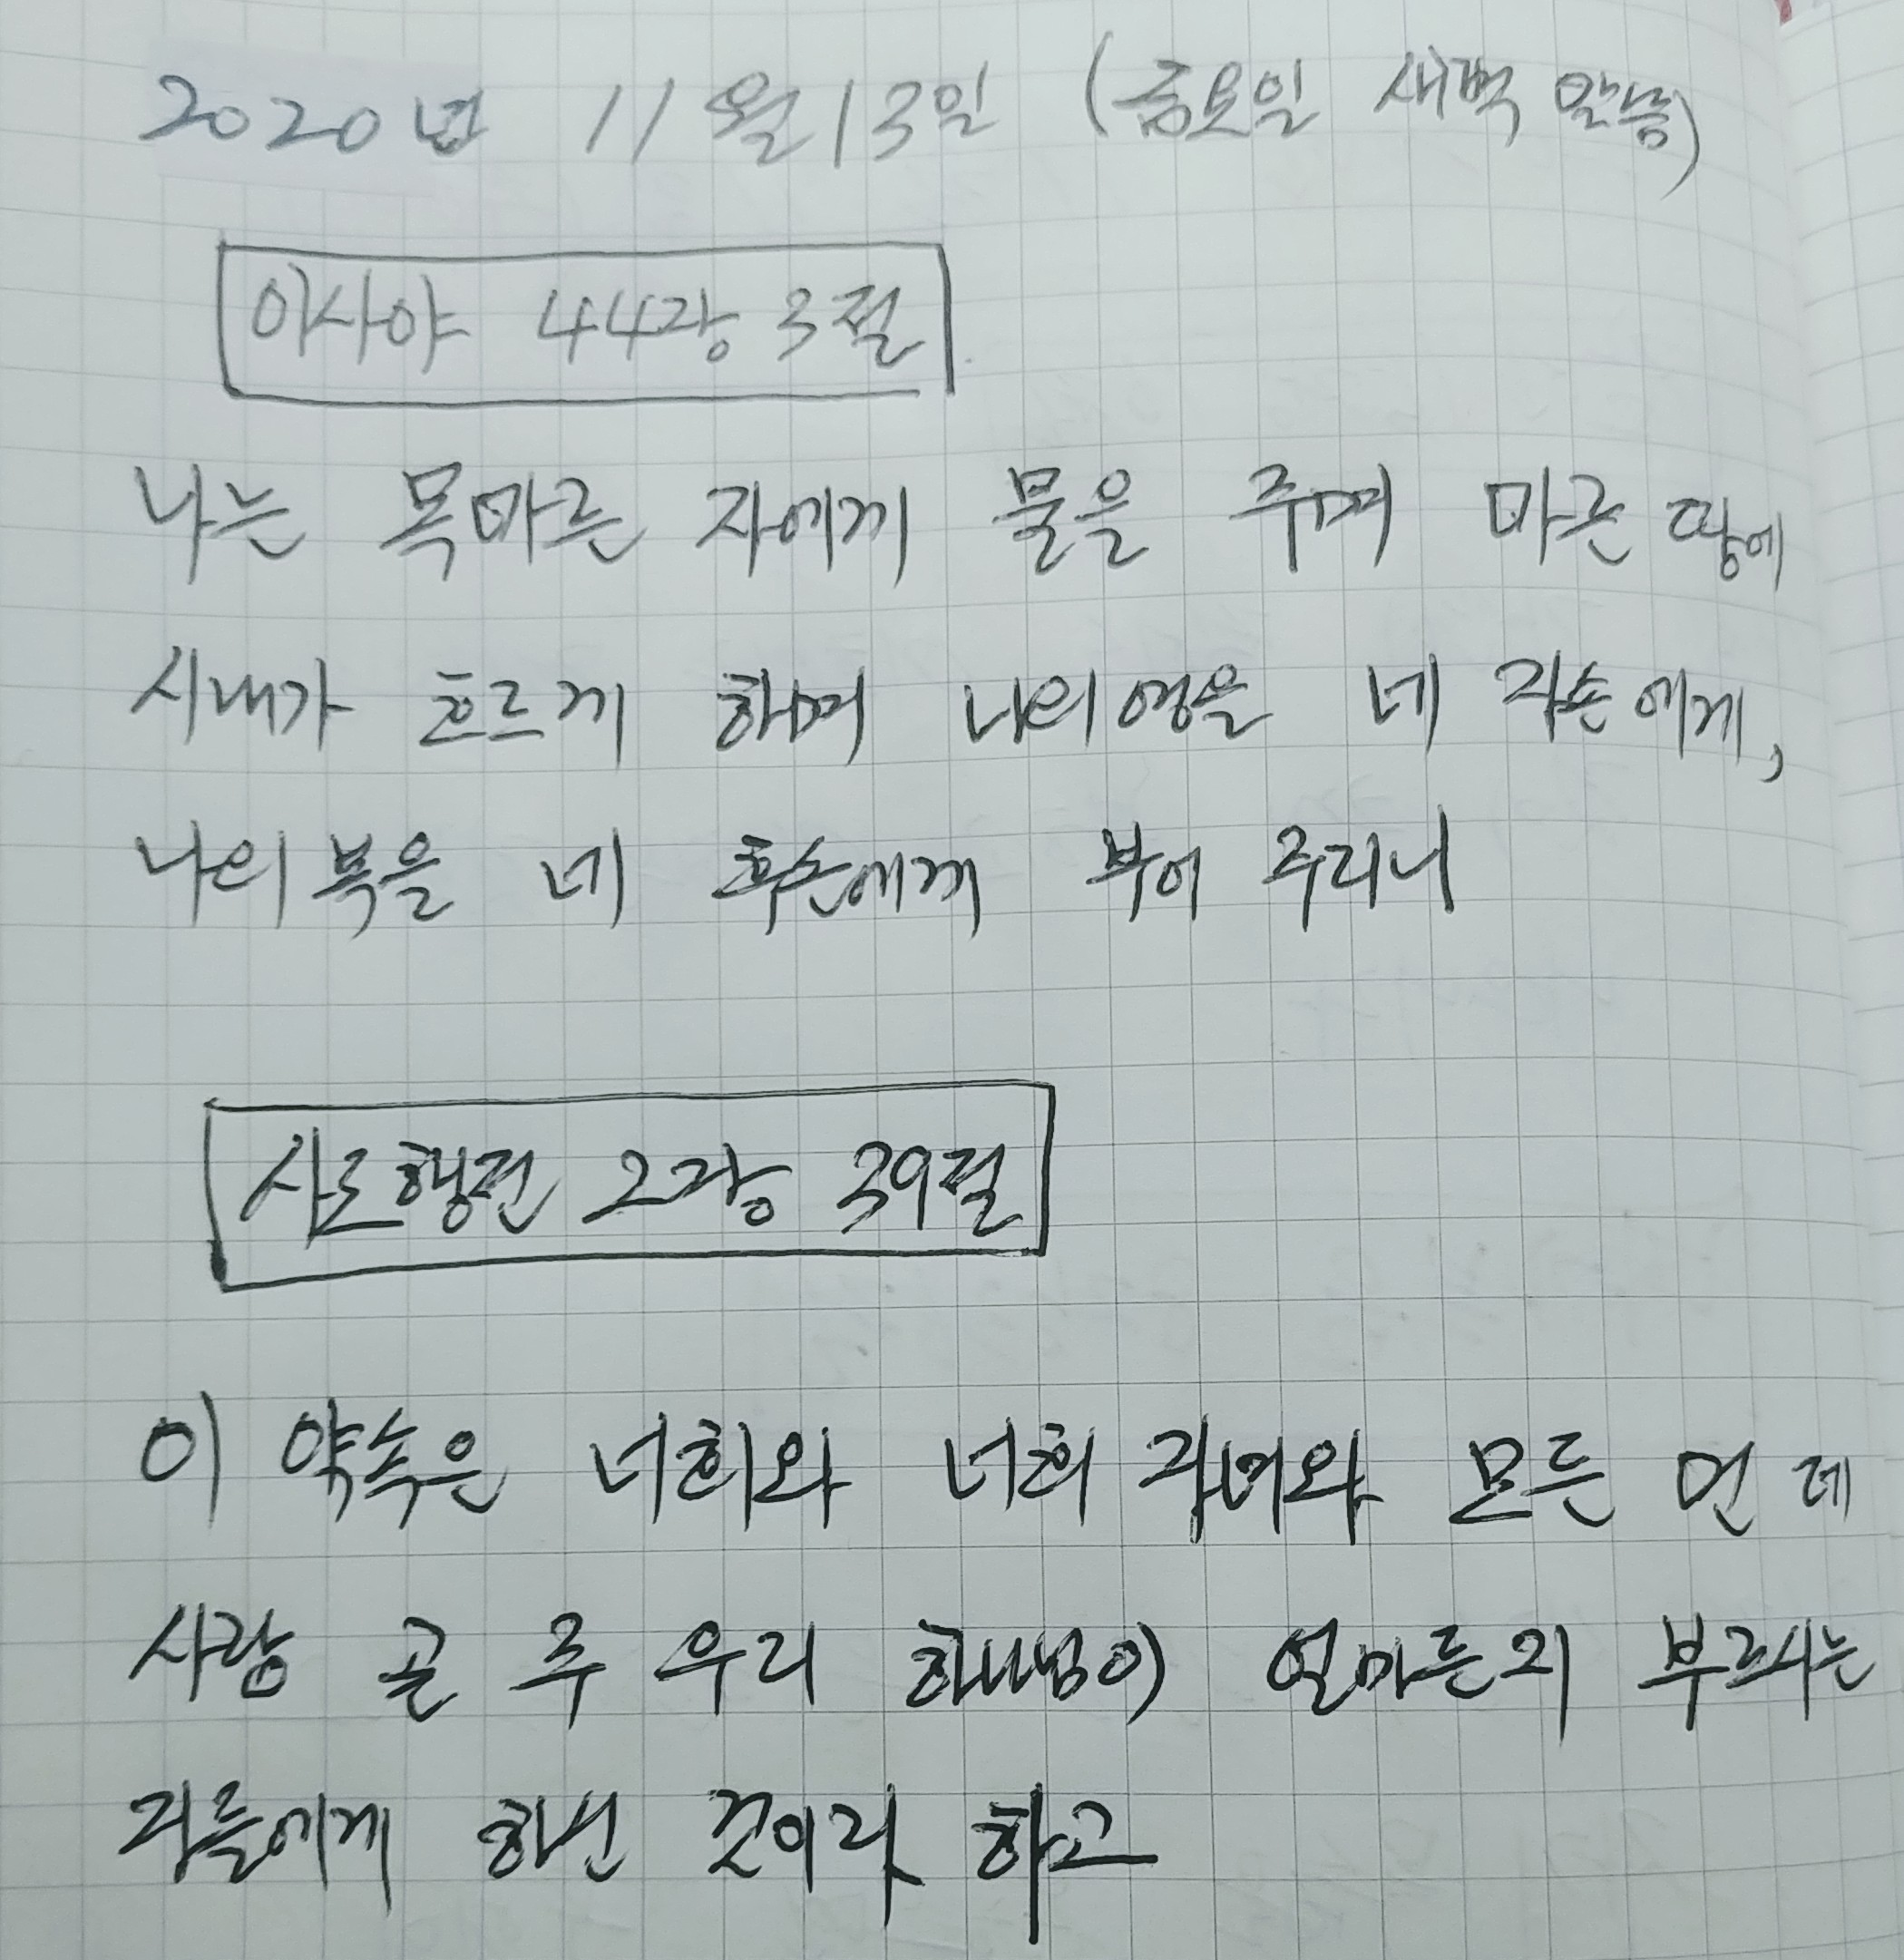 2020년 11월 13일 (금요일 새벽 말씀)
이사야 44장 3절
나는 목마른 자에게 물을 주며 마른 땅에
시내가 흐르게 하며 나의 영을 네 자손에게,
나의 복을 네 후손에게 부어 주리니
사도행전 2장 39절
이 약속은 너희와 너희 자녀와 모든 먼 데
사람 곧 주 우리 하나님이 얼마든지 부르시는
자들에게 하신 것이라 하고